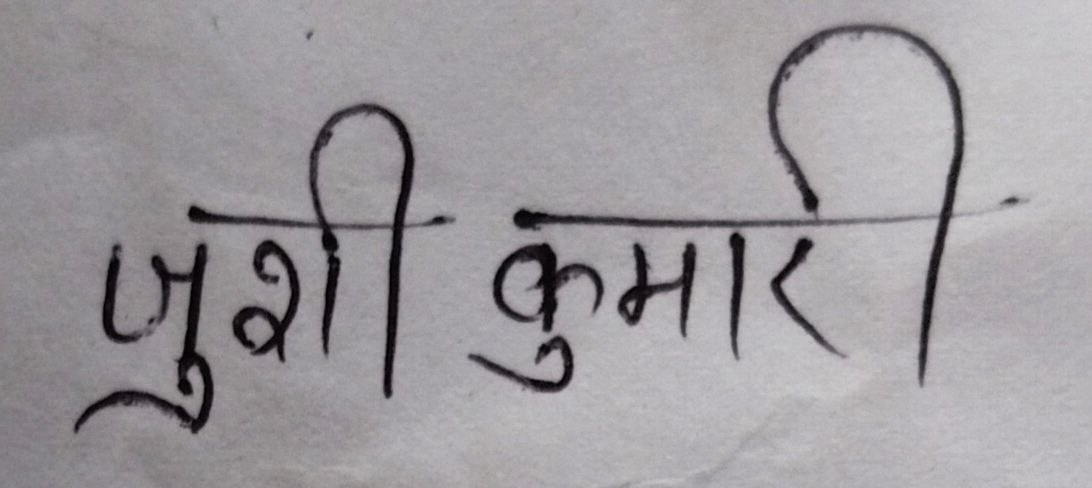 जुशी कुमारी